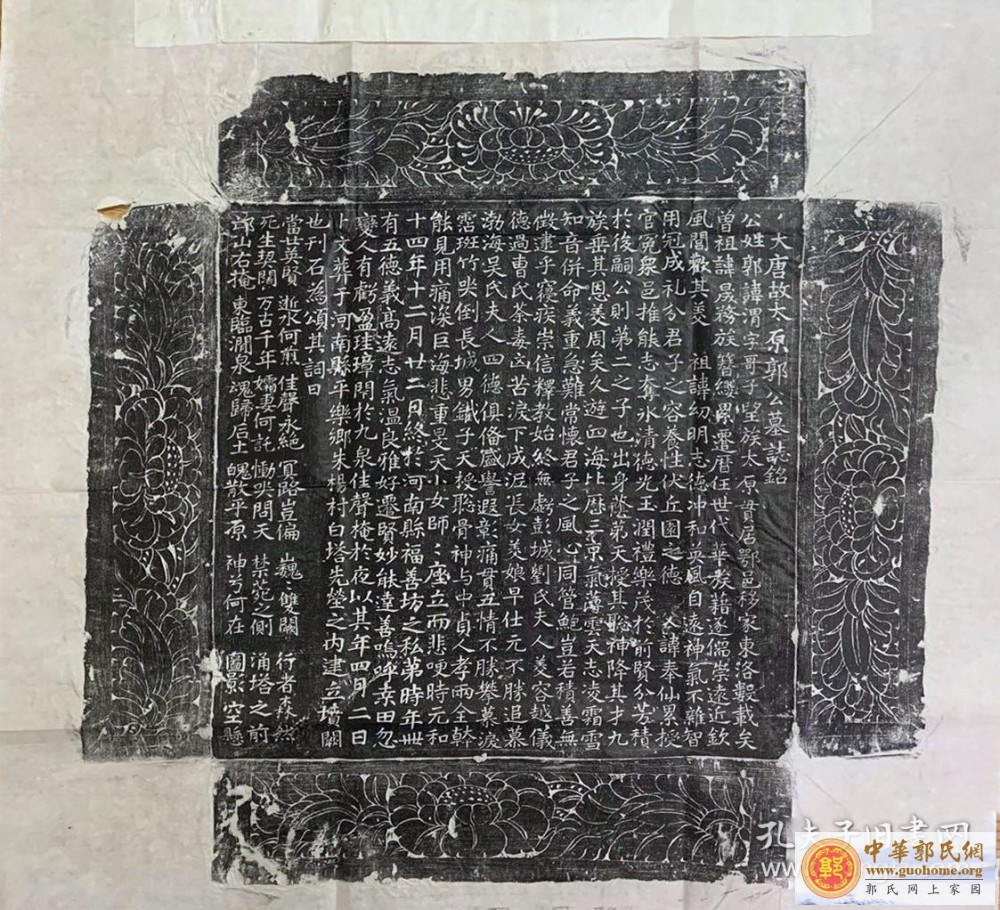 大唐故太原郭公墓誌銘
公姓郭諱渭字哥子望族太原貫居鄠邑移家東洛數載矣
曾祖諱晟務族簪纓累遷曆任世代華教藉逐倡崇遠近欽
風閭歡其美 祖諱幼明志德冲和英風自遠神氣不雜智
用冠成礼分君子之容養性伏丘園之德 父諱奉仙累授
官冕衆邑推能志奪氷清德光玉潤禮樂茂於前賢分芳積
於後嗣公則第二之子也出身蔭第天授其聡神降其才九
族垂其恩義周矣久遊四海比歷三京氣藹雲天志凌霜雪
知音併命義重急難常懷君子之風心同管鮑豈若積善無
徵遘乎寢疾崇信釋教始終無虧彭城劉氏夫人美容越儀
德過曹氏荼毒凶苦淚下成泥長女美娘早仕元不勝追慕
渤海吳氏夫人四德俱俻盛譽遐彰痛貫五情不勝攀慕淚
霑斑竹哭倒長城男鐵子天授聡骨神与中貞人孝兩全幹
能見用痛深巨海悲重旻天小女師〻座立而悲哽時元和
十四年十二月廿二日終於河南縣福善坊之私第時年卌
有五德義髙遠志氣温良雅好遷賢妙能達善嗚呼桒田忽
變人有虧盈珪璋閇於九泉佳聲掩於夜以其年四月二日
卜文葬于河南縣平樂鄉朱楊村白塔先塋之内建立墳闕
也刊石為頌其詞曰
當世英賢 逝水何煎 佳聲永絕 㝠路豈偏 巍〻雙闕 行者森然
死生契闊 万古千年 孀妻何託 慟哭問天 禁菀之側 涌塔之前
邙山右掩 東臨澗泉 魂歸后土 魄散平原 神兮何在 圖影空懸
孔夫子旧书网
中華郭氏網
www.guohome.org
郭氏网上家园